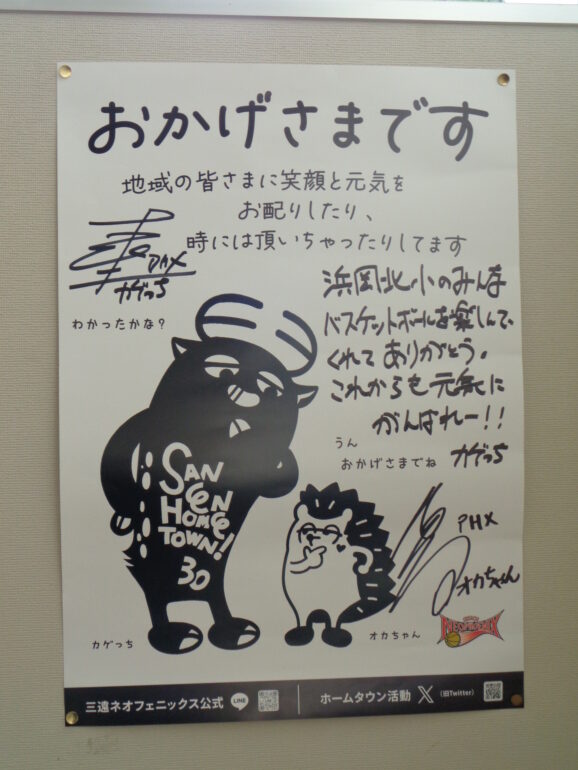 おかげさまです
地域の皆さまに笑顔と元気を
お配りしたり、
時には頂いちゃったりしてます
カゲっち
わかったかな?
浜岡北小のみんな
バスケットボールを楽しんで
くれてありがとう。
これからも元気に
がんばれー!!
カゲっち
うん
おかげさまでね
SAN
EN
HOME
TOWN!
30
PHX
オカちゃん
カゲっち
オカちゃん
NEOPHOENIX
三遠ネオフェニックス公式 LINE
ホームタウン活動 X (旧Twitter)